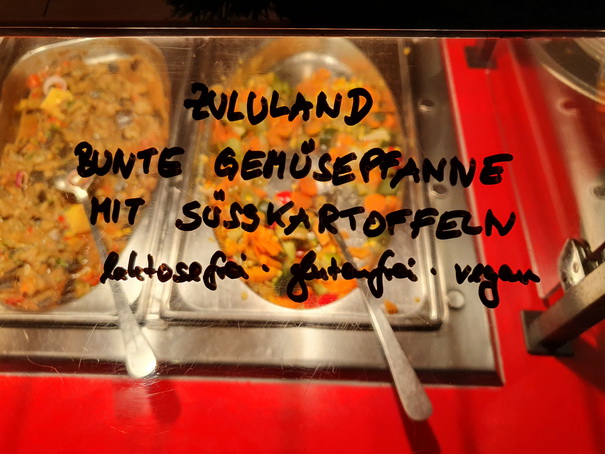 ZULULAND
BUNTE GEMÜSEPFANNE
MIT SÜSSKARTOFFELN
laktosefrei · glutenfrei · vegan